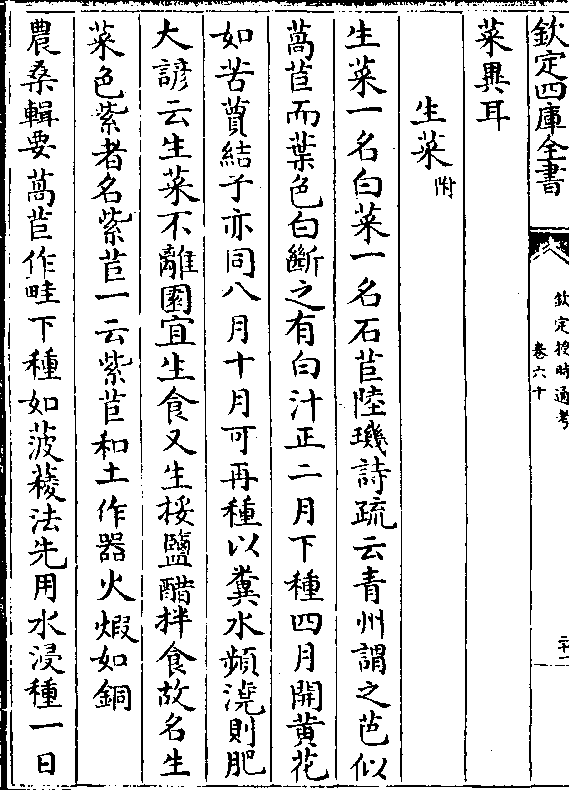 欽定四庫全書
欽定授時通考
卷六十
二十一
菜異耳
生菜附
生菜一名白菜一名石苣陸璣詩疏云青州謂之芑似
萵苣而葉色白斷之有白汁正二月下種四月開黃花
如苦蕒結子亦同八月十月可再種以糞水頻澆則肥
大諺云生菜不離園宜生食又生挼鹽醋拌食故名生
菜色紫者名紫苣一云紫苣和土作器火煆如銅
農桑輯要萵苣作畦下種如菠薐法先用水浸種一日